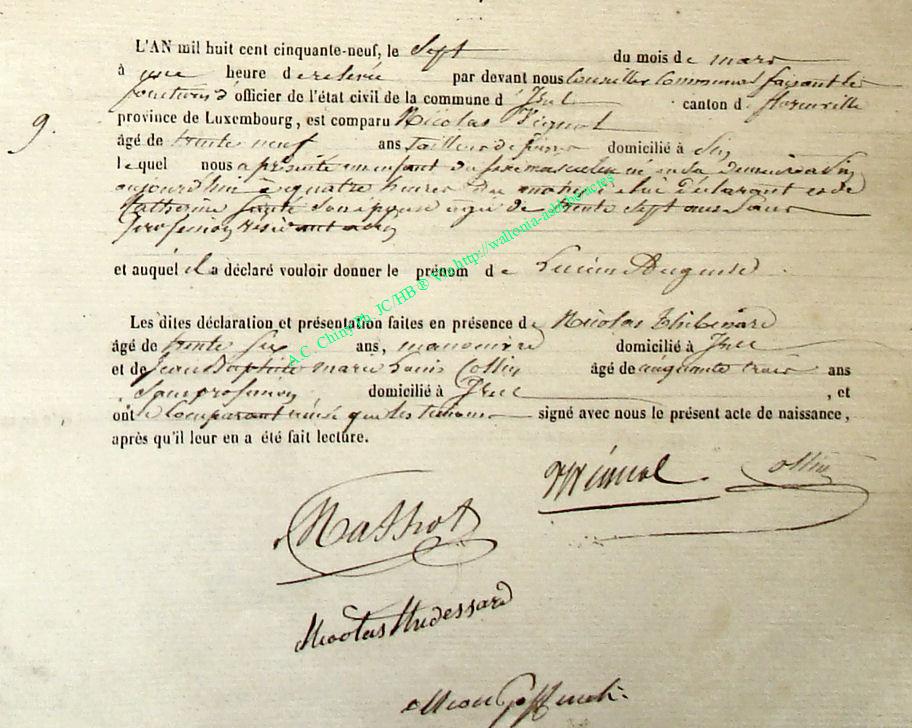 L'AN mil huit cent cinquante-neuf, le Sept du mois de mars
à une heure de relevée par devant nous Conseiller Communal faisant les
fonctions d'officier de l'état civil de la commune d' Izel canton de florenville
9.
province de Luxembourg, est comparu Nicolas
âgé de trente neuf ans tailleur de pierres domicilié à
lequel nous a présenté un enfant du sexe masculin né en sa demeure à
aujourd'hui à quatre heures du matin, de lui déclarant et de
Catherine son épouse agée de trente sept ans Sans
profession résidant
et auquel il a déclaré vouloir donner le prénom de Lucien Auguste
Les dites déclaration et présentation faites en présence de Nicolas
âgé de trente six ans, manoeuvre domicilié à Izel
et de Jean Baptiste marie Louis Collin âgé de cinquante trois ans
, Sans profession domicilié à Izel , et
ont le Comparant ainsi que les témoins signé avec nous le présent acte de naissance,
après qu'il leur en a été fait lecture.
Collin
Nicolas
A.C. Chiny Ph. JC/HB ® via http://wallonia-asbl.be/actes